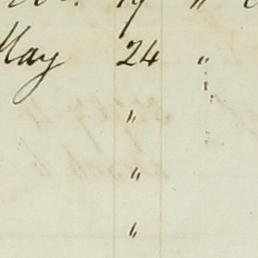 19 "
May 24 "
"
"
"